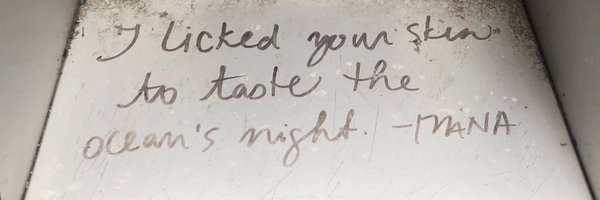 I licked your skin
to taste the
ocean's night. -MANA